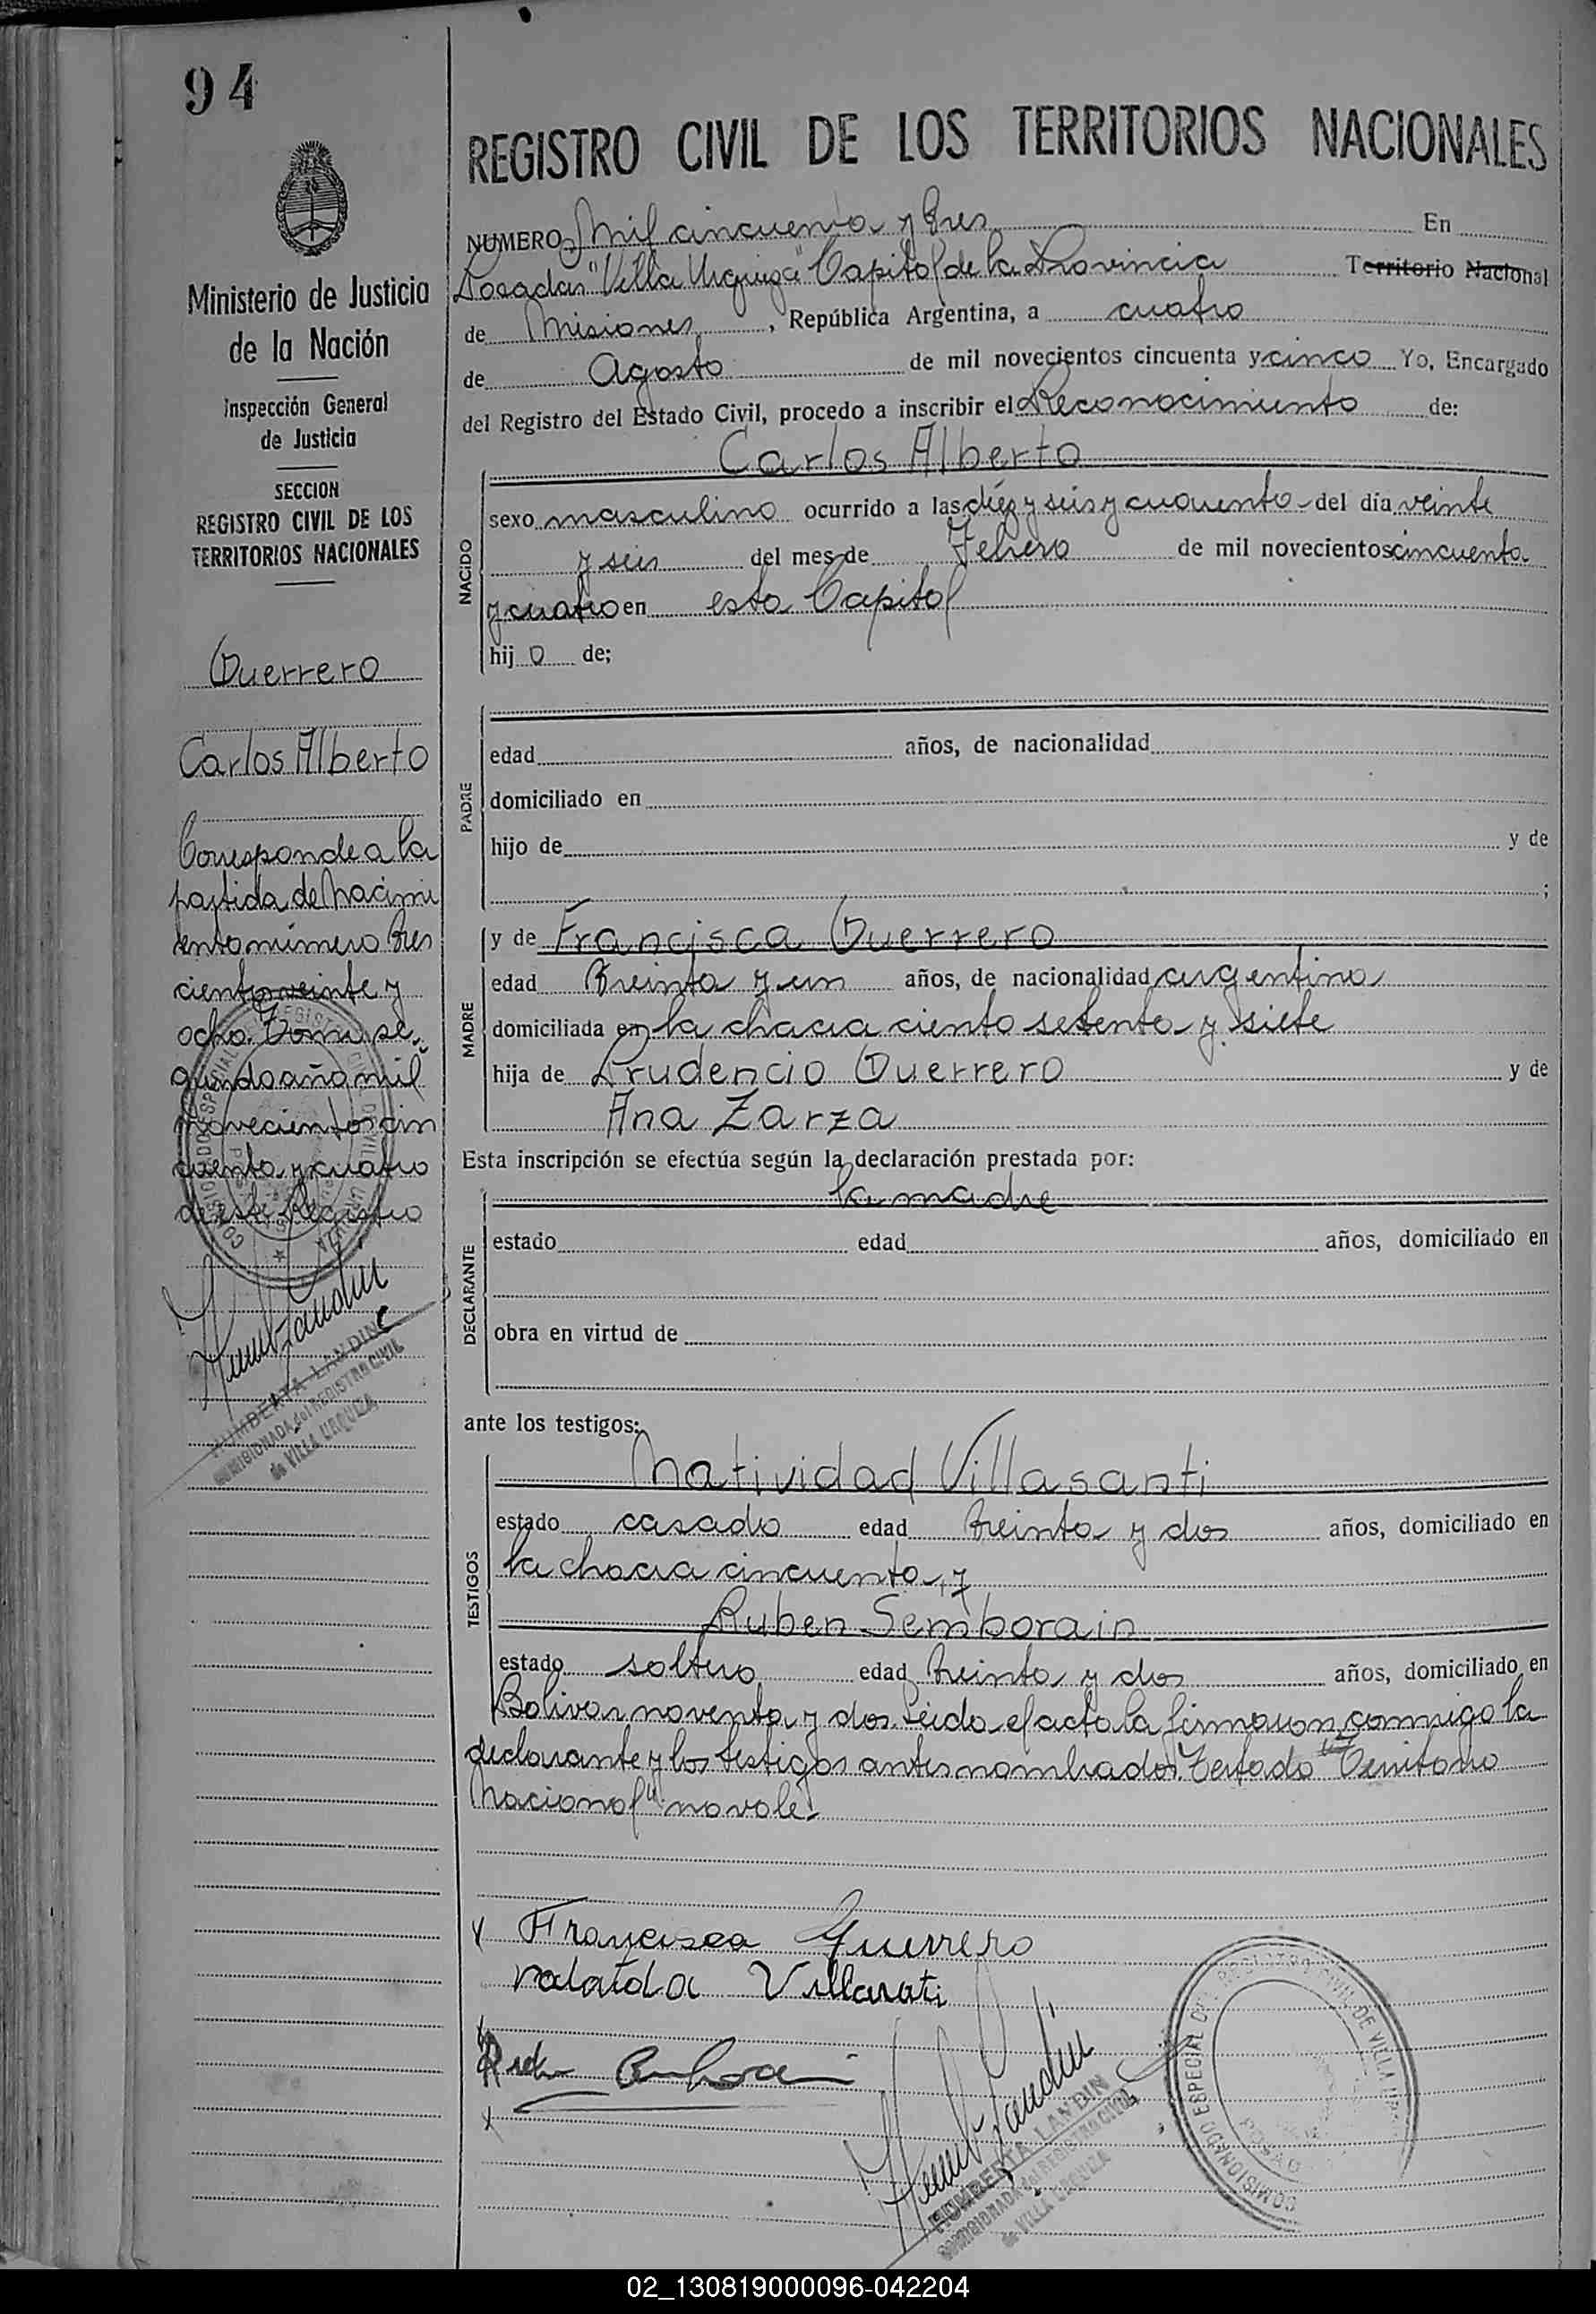 94
Ministerio de Justicia
de la Nación
Inspección General
de Justicia
SECCION
REGISTRO CIVIL DE LOS
TERRITORIOS NACIONALES
Guerrero
Carlos Alberto
Corresponde a la
partida de Nacimi
ento número tres
ciento veinte y
ocho Tomo se-
gundo año mil
novecientos cin
cuenta y cuatro
de este Registro
HUMBERTA LANDIN
COMISIONADA del REGISTRO CIVIL
de VILLA URQUIZA
REGISTRO CIVIL DE LOS TERRITORIOS NACIONALES
NUMERO Mil cincuenta y tres En
Posadas "Villa Urquiza" Capital de la Provincia Territorio Nacional
de Misiones, República Argentina, a cuatro
de Agosto de mil novecientos cincuenta y cinco Yo, Encargado
del Registro del Estado Civil, procedo a inscribir el Reconocimiento de:
Carlos Alberto
NACIDO
sexo masculino ocurrido a las diez y seis y cuarenta del día veinte
y seis del mes de Febrero de mil novecientos cincuenta
y cuatro en esta Capital
hij o de;
PADRE
edad años, de nacionalidad
domiciliado en
hijo de y de
;
MADRE
y de Francisca Guerrero
edad Treinta y un años, de nacionalidad argentina
domiciliada en la chacra ciento setenta y siete
hija de Prudencio Guerrero y de
Ana Zarza
Esta inscripción se efectúa según la declaración prestada por:
DECLARANTE
la madre
estado edad años, domiciliado en
obra en virtud de
ante los testigos:
TESTIGOS
Natividad Villasanti
estado casado edad Treinta y dos años, domiciliado en
la chacra cincuenta, y
Ruben Semborain
estado soltero edad Treinta y dos años, domiciliado en
Bolivar noventa y dos. Leida el acta la firmaron conmigo la
declarante y los testigos antes nombrados. Testado "Territorio
Nacional" no vale.
Francisca Guerrero
Villasati
HUMBERTA LANDIN
COMISIONADA del REGISTRO CIVIL
de VILLA URQUIZA
COMISIONADO ESPECIAL DEL REGISTRO CIVIL DE VILLA
POSADAS
02_130819000096-042204